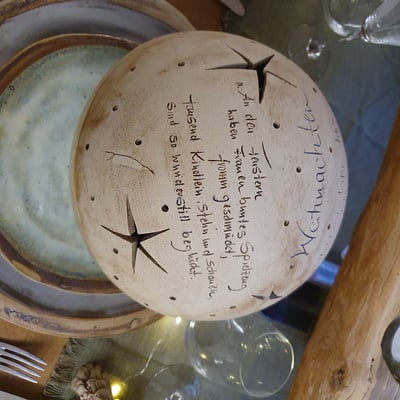 Weihnachten
"An den Fenstern
haben Frauen buntes Spielzeug
fromm geschmückt,
tausend Kindlein stehn und schauen,
sind so wunderstill beglückt.